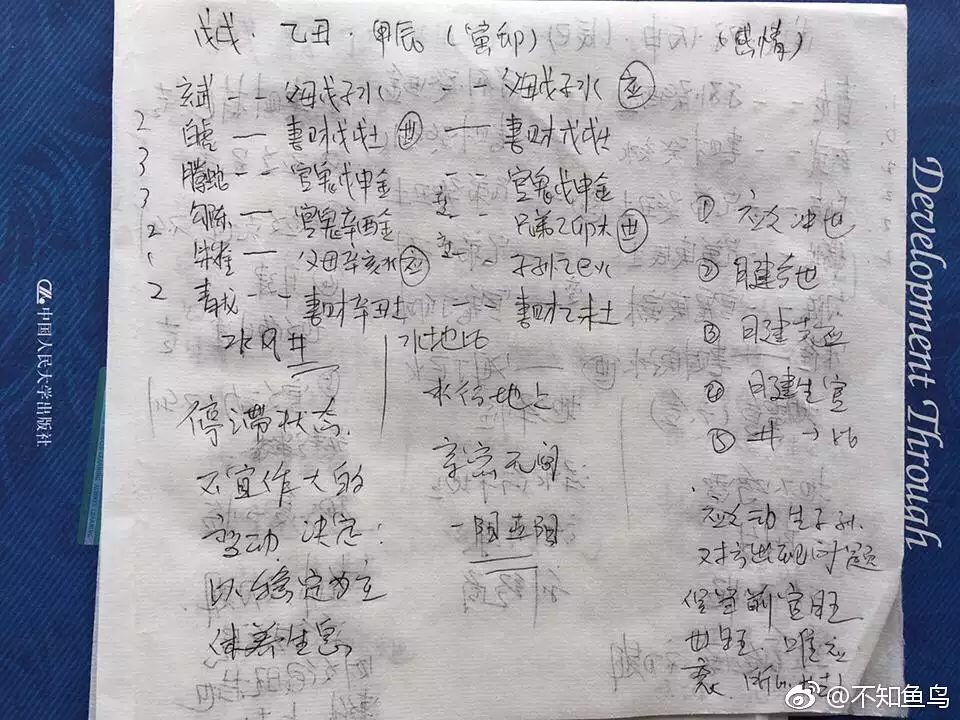 戊戌·乙丑·甲辰(寅卯) (感情)
玄武 -- 父母戊子水 -- 父母戊子水 应
2 白虎 — 妻财戊戌土 世 — 妻财戊戌土
3 腾蛇 -- 官鬼戊申金 -- 官鬼戊申金
3 勾陈 — 官鬼辛酉金 -- 兄弟乙卯木 世
2 朱雀 — 父母辛亥水 应 -- 子孙乙巳火
2 青龙 -- 妻财辛丑土 妻财乙未土
水风井 水地比
停滞状态
不宜作大的
变动 决定:
以稳定为主
休养生息
水行地上
亲密无间
① 应爻冲世
② 日建合世
③ 日建
④ 日建生官
⑤ 井→比
应爻动生子孙
对方出现问题
官旺
世旺 唯应
衰
中国人民大学出版社
Development Through
@不知鱼鸟